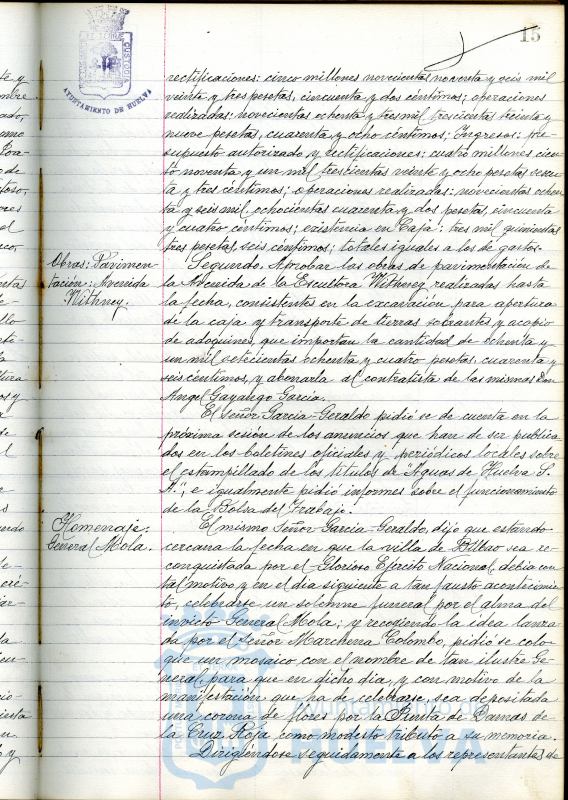 15
AYUNTAMIENTO DE HUELVA
CUSTODI
rectificaciones: cinco millones novecientas noventa y seis mil
veinte y tres pesetas, cincuenta y dos céntimos; operaciones
realizadas: novecientas ochenta y tres mil trescientas treinta y
nueve pesetas, cuarenta y ocho céntimos; Ingresos: pre-
supuesto autorizado y rectificaciones: cuatro millones cien-
to noventa y un mil trescientas veinte y ocho pesetas sesen-
ta y tres céntimos; operaciones realizadas: novecientas ochen-
ta y seis mil ochocientas cuarenta y dos pesetas, cincuenta
y cuatro céntimos; existencia en Caja: tres mil quinientas
tres pesetas, seis céntimos; totales iguales a los de gastos.
Obras: Pavimen-
tación: Avenida
Withney.
Segundo. Aprobar las obras de pavimentación de
la Avenida de la Escultora Withney, realizadas hasta
la fecha, consistentes en la excavación para apertura
de la caja y transporte de tierras sobrantes y acopio
de adoquines, que importan la cantidad de ochenta y
un mil setecientas ochenta y cuatro pesetas, cuarenta y
seis céntimos, y abonarla al contratista de las mismas Don
Angel Gayarego García.
El Señor García-Geraldo pidió se de cuenta en la
próxima sesión de los anuncios que han de ser publica-
dos en los boletines oficiales y periódicos locales sobre
el estampillado de los títulos de "Aguas de Huelva S.
A.", e igualmente pidió informes sobre el funcionamiento
de la Bolsa del Trabajo.
Homenaje:
General Mola.
El mismo Señor García-Geraldo, dijo que estando
cercana la fecha en que la villa de Bilbao sea re-
conquistada por el Glorioso Ejército Nacional, debía con
tal motivo y en el día siguiente a tan fausto acontecimien-
to, celebrarse un solemne funeral por el alma del
invicto General Mola; y recogiendo la idea lanza-
da por el Señor Marchena Colombo, pidió se colo-
que un mosaico con el nombre de tan ilustre Ge-
neral, para que en dicho día, y con motivo de la
manifestación que ha de celebrarse, sea depositada
una corona de flores por la Junta de Damas de
la Cruz Roja como modesto tributo a su memoria.
Dirigiéndose seguidamente a los representantes de
Ayuntamiento de
HUELVA